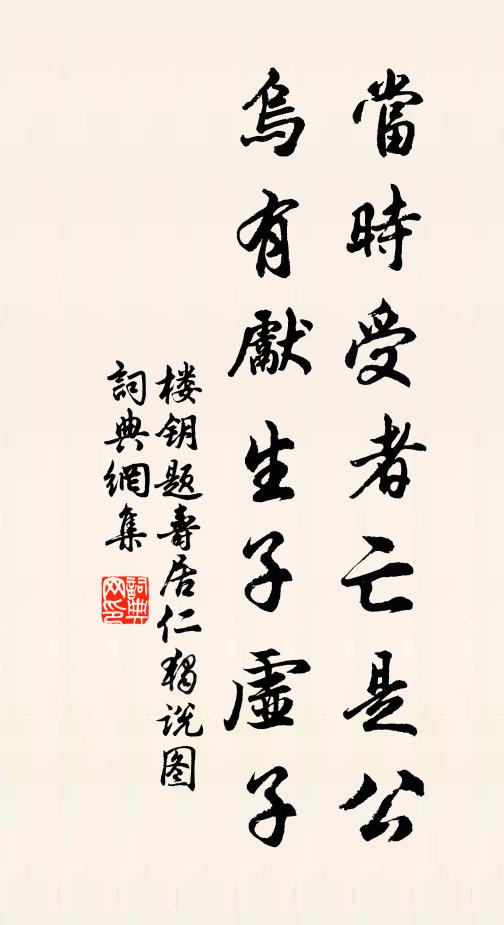 當時受者亡是公
烏有獻生子虛子
楼钥题壽居仁獨说图
詞典網集
詞典
网印